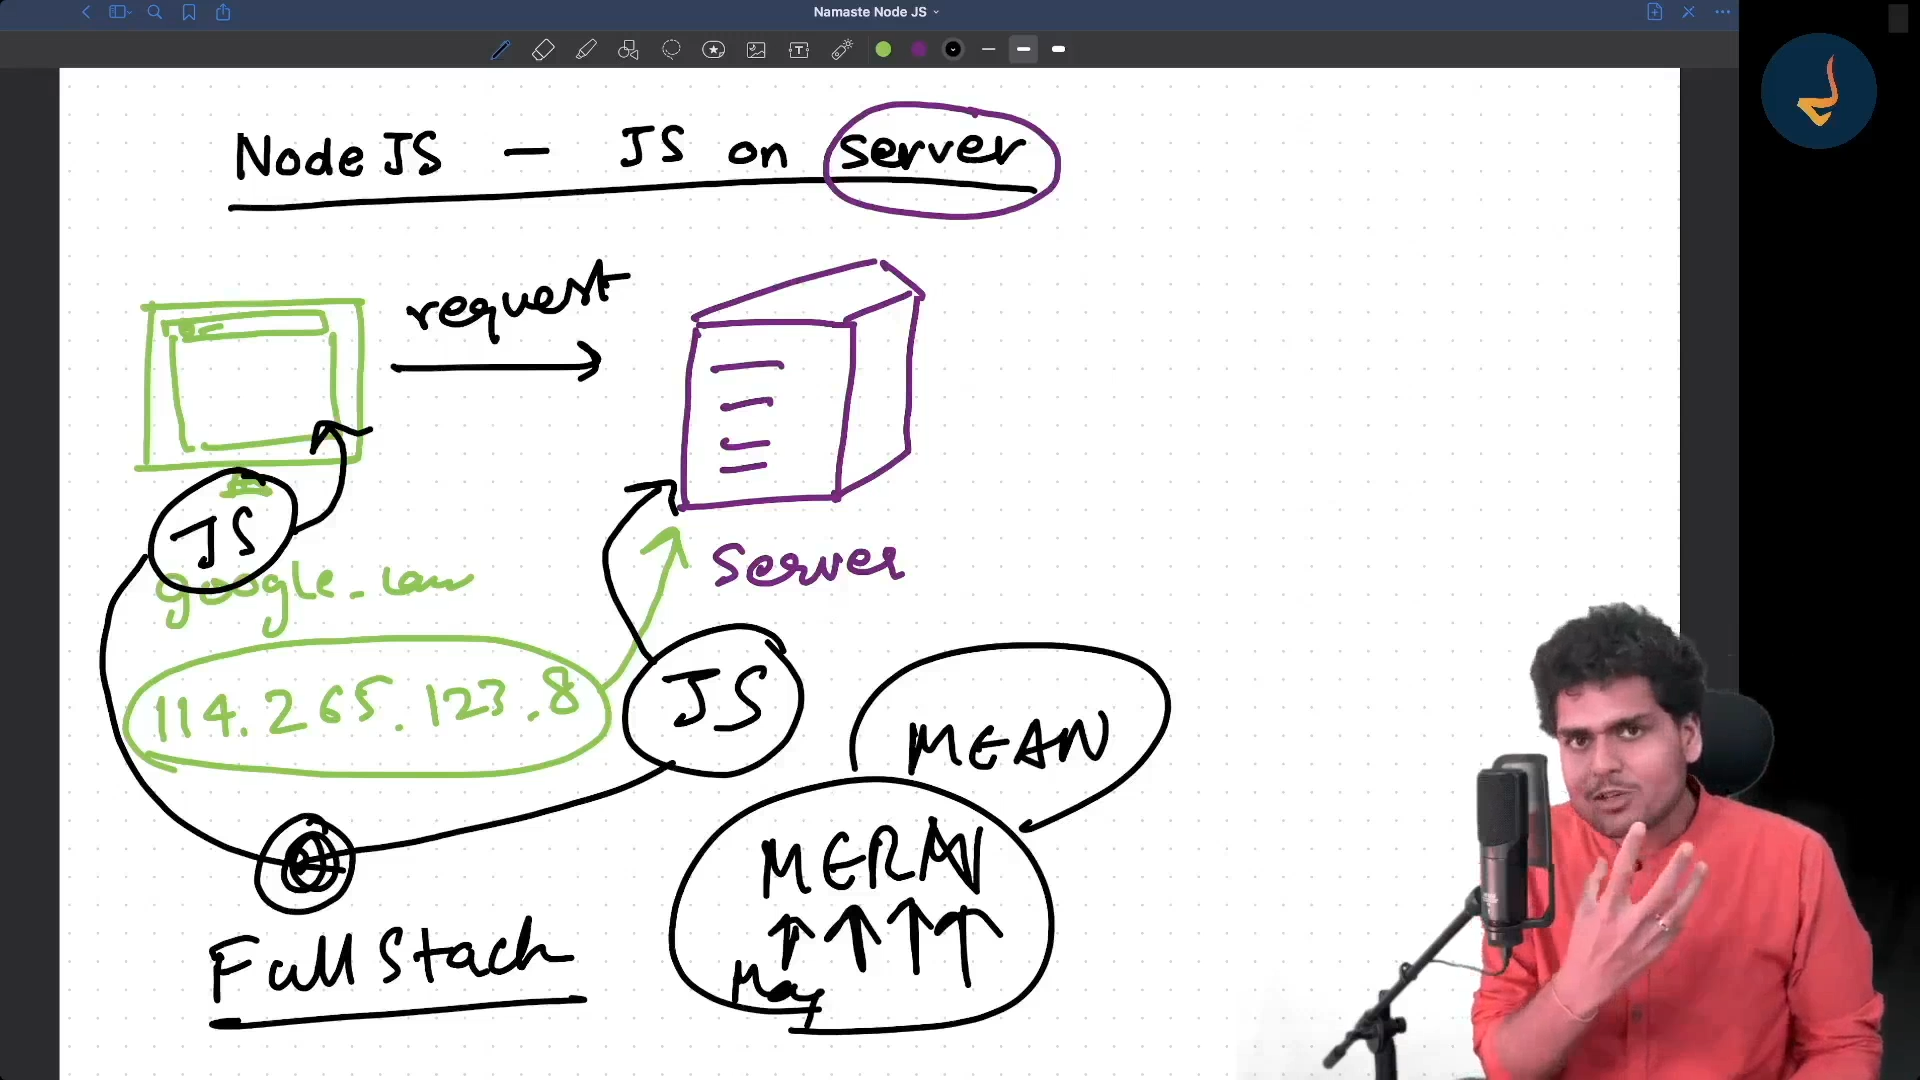 Namaste Node JS
Node JS — JS on server
request
JS
google.com
server
114.265.123.8
JS
MEAN
MERN
Full Stack